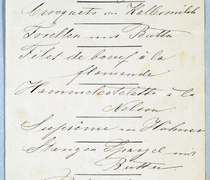 Croquets von Kalbsmilch
Forellen mit Butter
Filet de boeuf à la
flamande
Hammelcoteletts à la
Nelson
Suprème von Hühner
Stangen Spargel mit
Butter